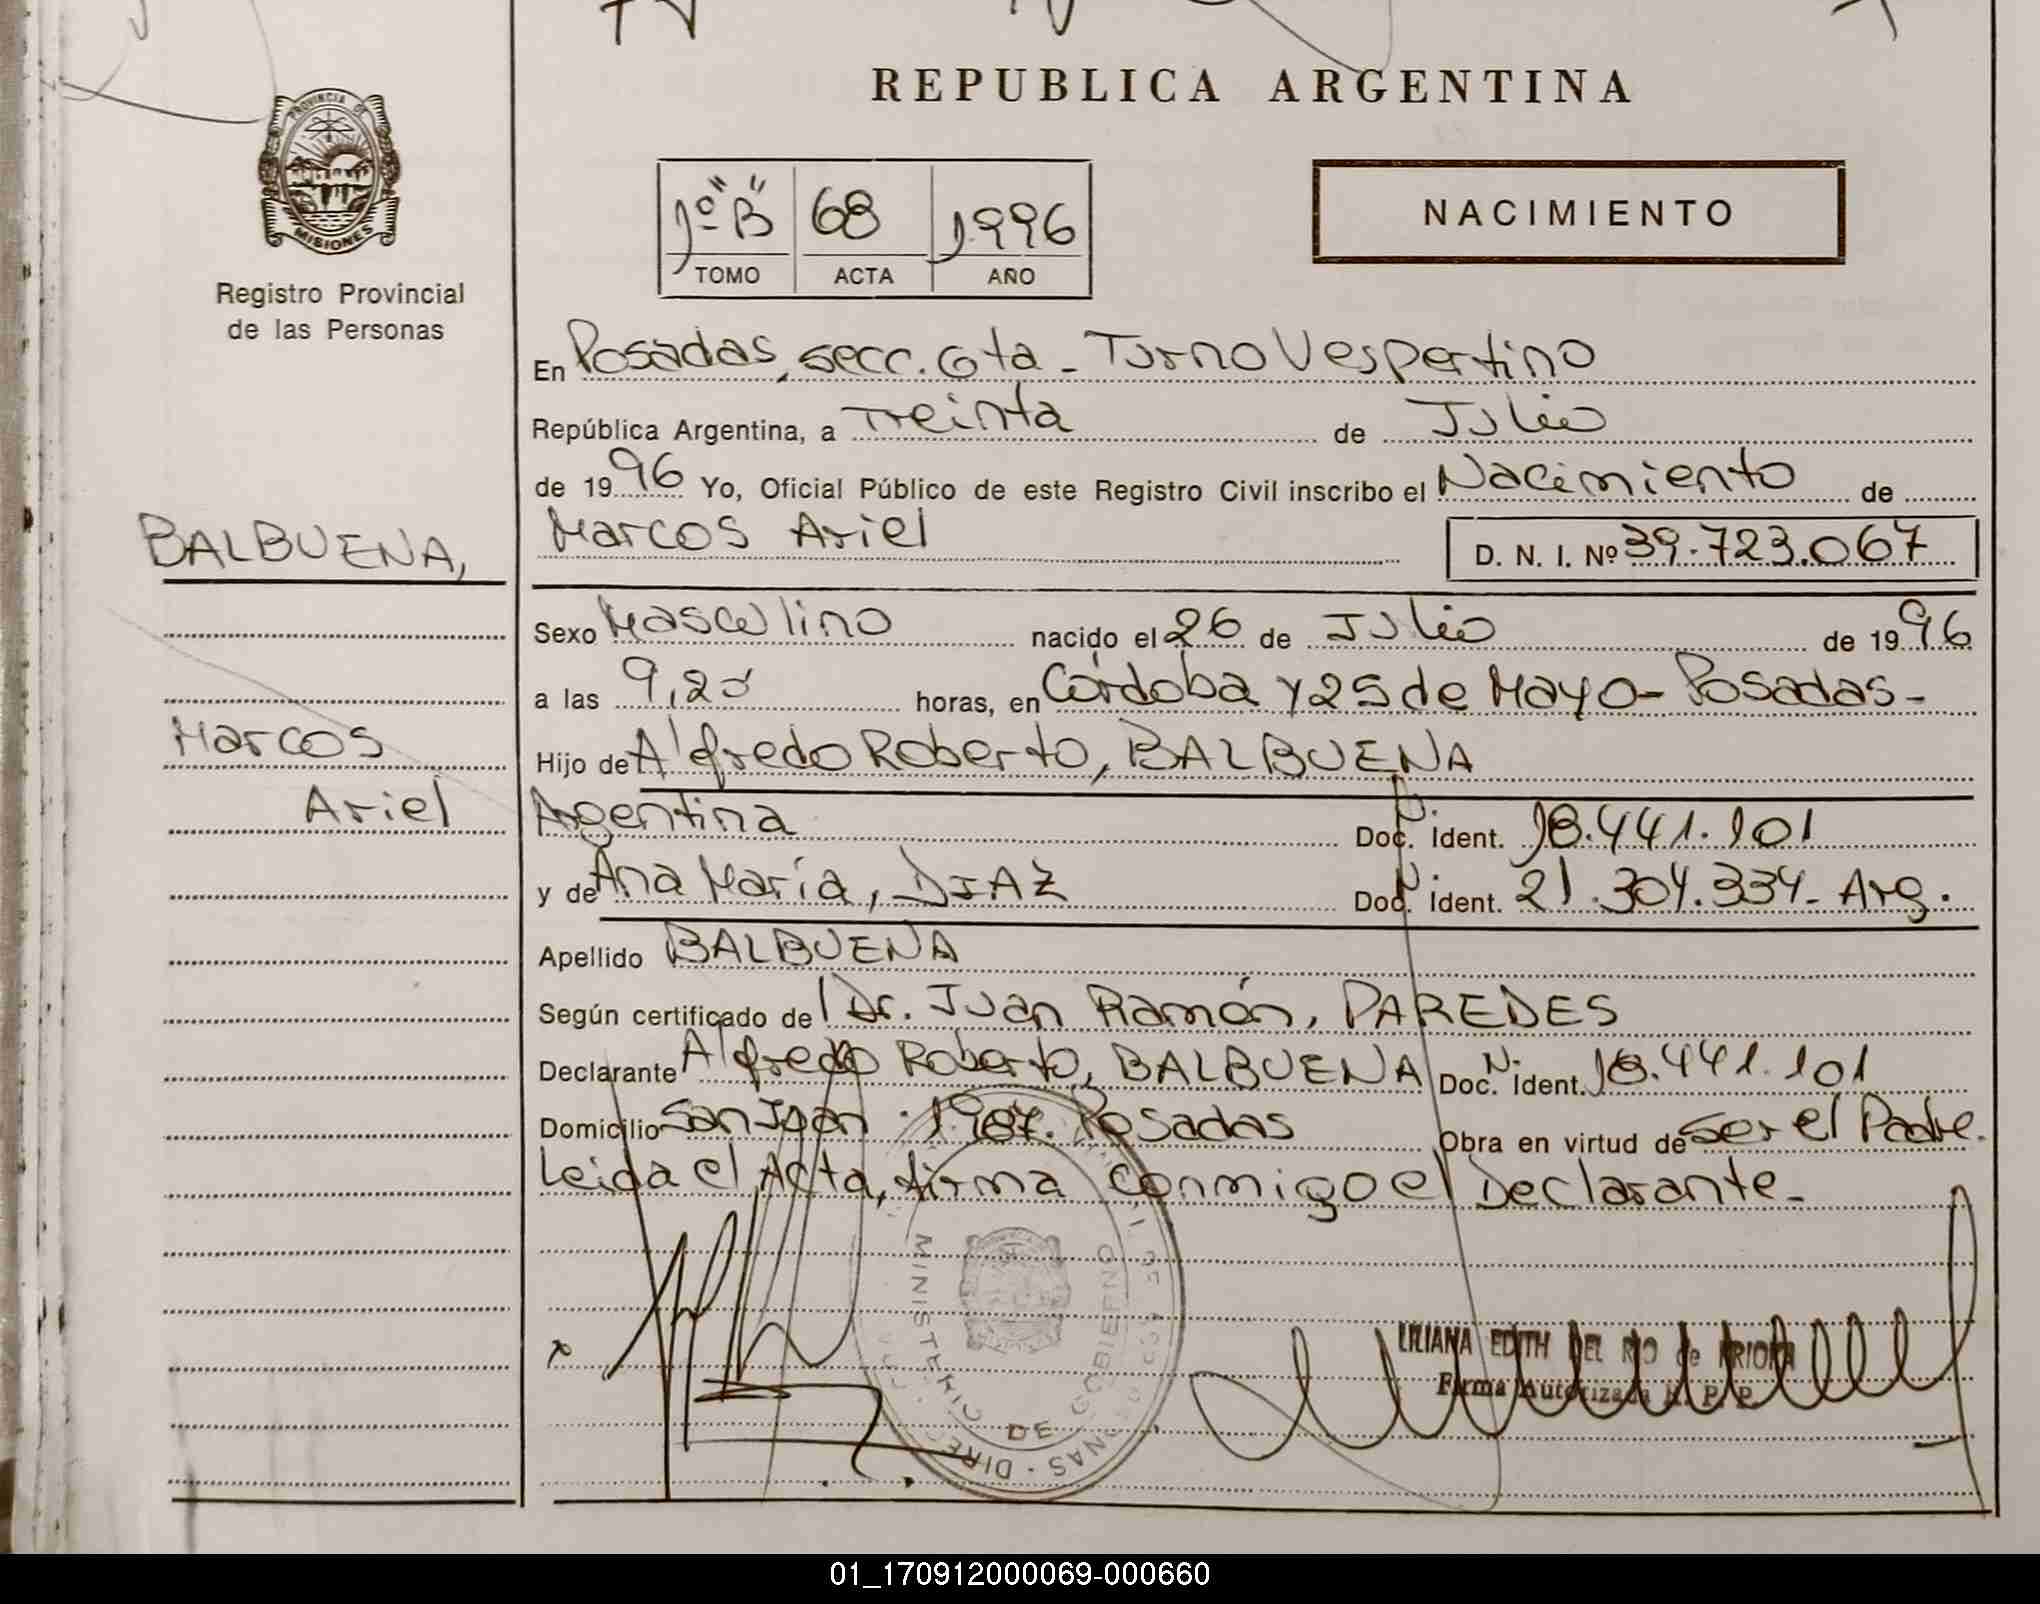 REPUBLICA ARGENTINA
PROVINCIA DE
MISIONES
Registro Provincial
de las Personas
1º "B" 68 1996
TOMO ACTA AÑO
NACIMIENTO
En Posadas, secc. 6ta - Turno Vespertino
República Argentina, a Treinta de Julio
de 1996 Yo, Oficial Público de este Registro Civil inscribo el Nacimiento de
Marcos Ariel D. N. I. Nº 39.723.067
BALBUENA,
Marcos
Ariel
Sexo Masculino nacido el 26 de Julio de 1996
a las 9,20 horas, en Córdoba y 25 de Mayo - Posadas -
Hijo de Alfredo Roberto, BALBUENA
Argentina Doc. Ident. 18.441.101
y de Ana María, DIAZ Doc. Ident. 21.304.334 - Arg.
Apellido BALBUENA
Según certificado del Dr. Juan Ramón, PAREDES
Declarante Alfredo Roberto, BALBUENA Doc. Ident. 18.441.101
Domicilio San Juan 1987. Posadas Obra en virtud de ser el Padre.
Leida el Acta, firma conmigo el Declarante -
MINISTERIO DE GOBIERNO
LILIANA EDITH DEL RIO de
Firma Autorizada R. P. P.
01_170912000069-000660